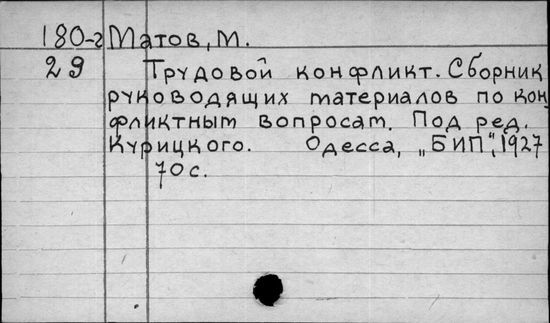 180-г Матов, М.
29 Трудовой конфликт. Сборник
руководящих материалов по кон
фликтным вопросам. Под ред.
Курицкого. Одесса, „БИП", 1927
70 с.